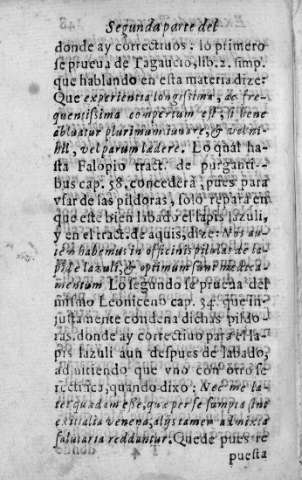 Segunda parte del
donde ay correctiuos: lo primero
se prueua de Tagaucio, lib. 2. simp.
que hablando en esta materia dize:
Que experientia longissima, ac fre-
quentissima compertum est, si bene
abluatur plurimum iuuare, & vel ni-
hil, vel parum ladere. Lo qual ha-
sta Falopio tract. de purganti-
bus cap. 58. concederà, pues para
vsar de las pildoras, solo repara en
que estè bien labado el lapis lazuli,
y en el tract. de aquis, dize: Nos au-
tem habemus in officinis pilulas de la-
pide lazuli, & optimum sunt medica-
mentum Lo segundo se prueua del
mismo Leoniceno cap. 34. que in-
justamente condena dichas pildo-
ras. donde ay correctiuo para el la-
pis lazuli aun despues de labado,
aduirtiendo que vno con otro se
rectifica, quando dixo: Nec me la-
tet quædam esse, quæ per se sumpta sint
exitialia venena, alijs tamen admixta
salutaria redduntur. Quede pues re
puesta